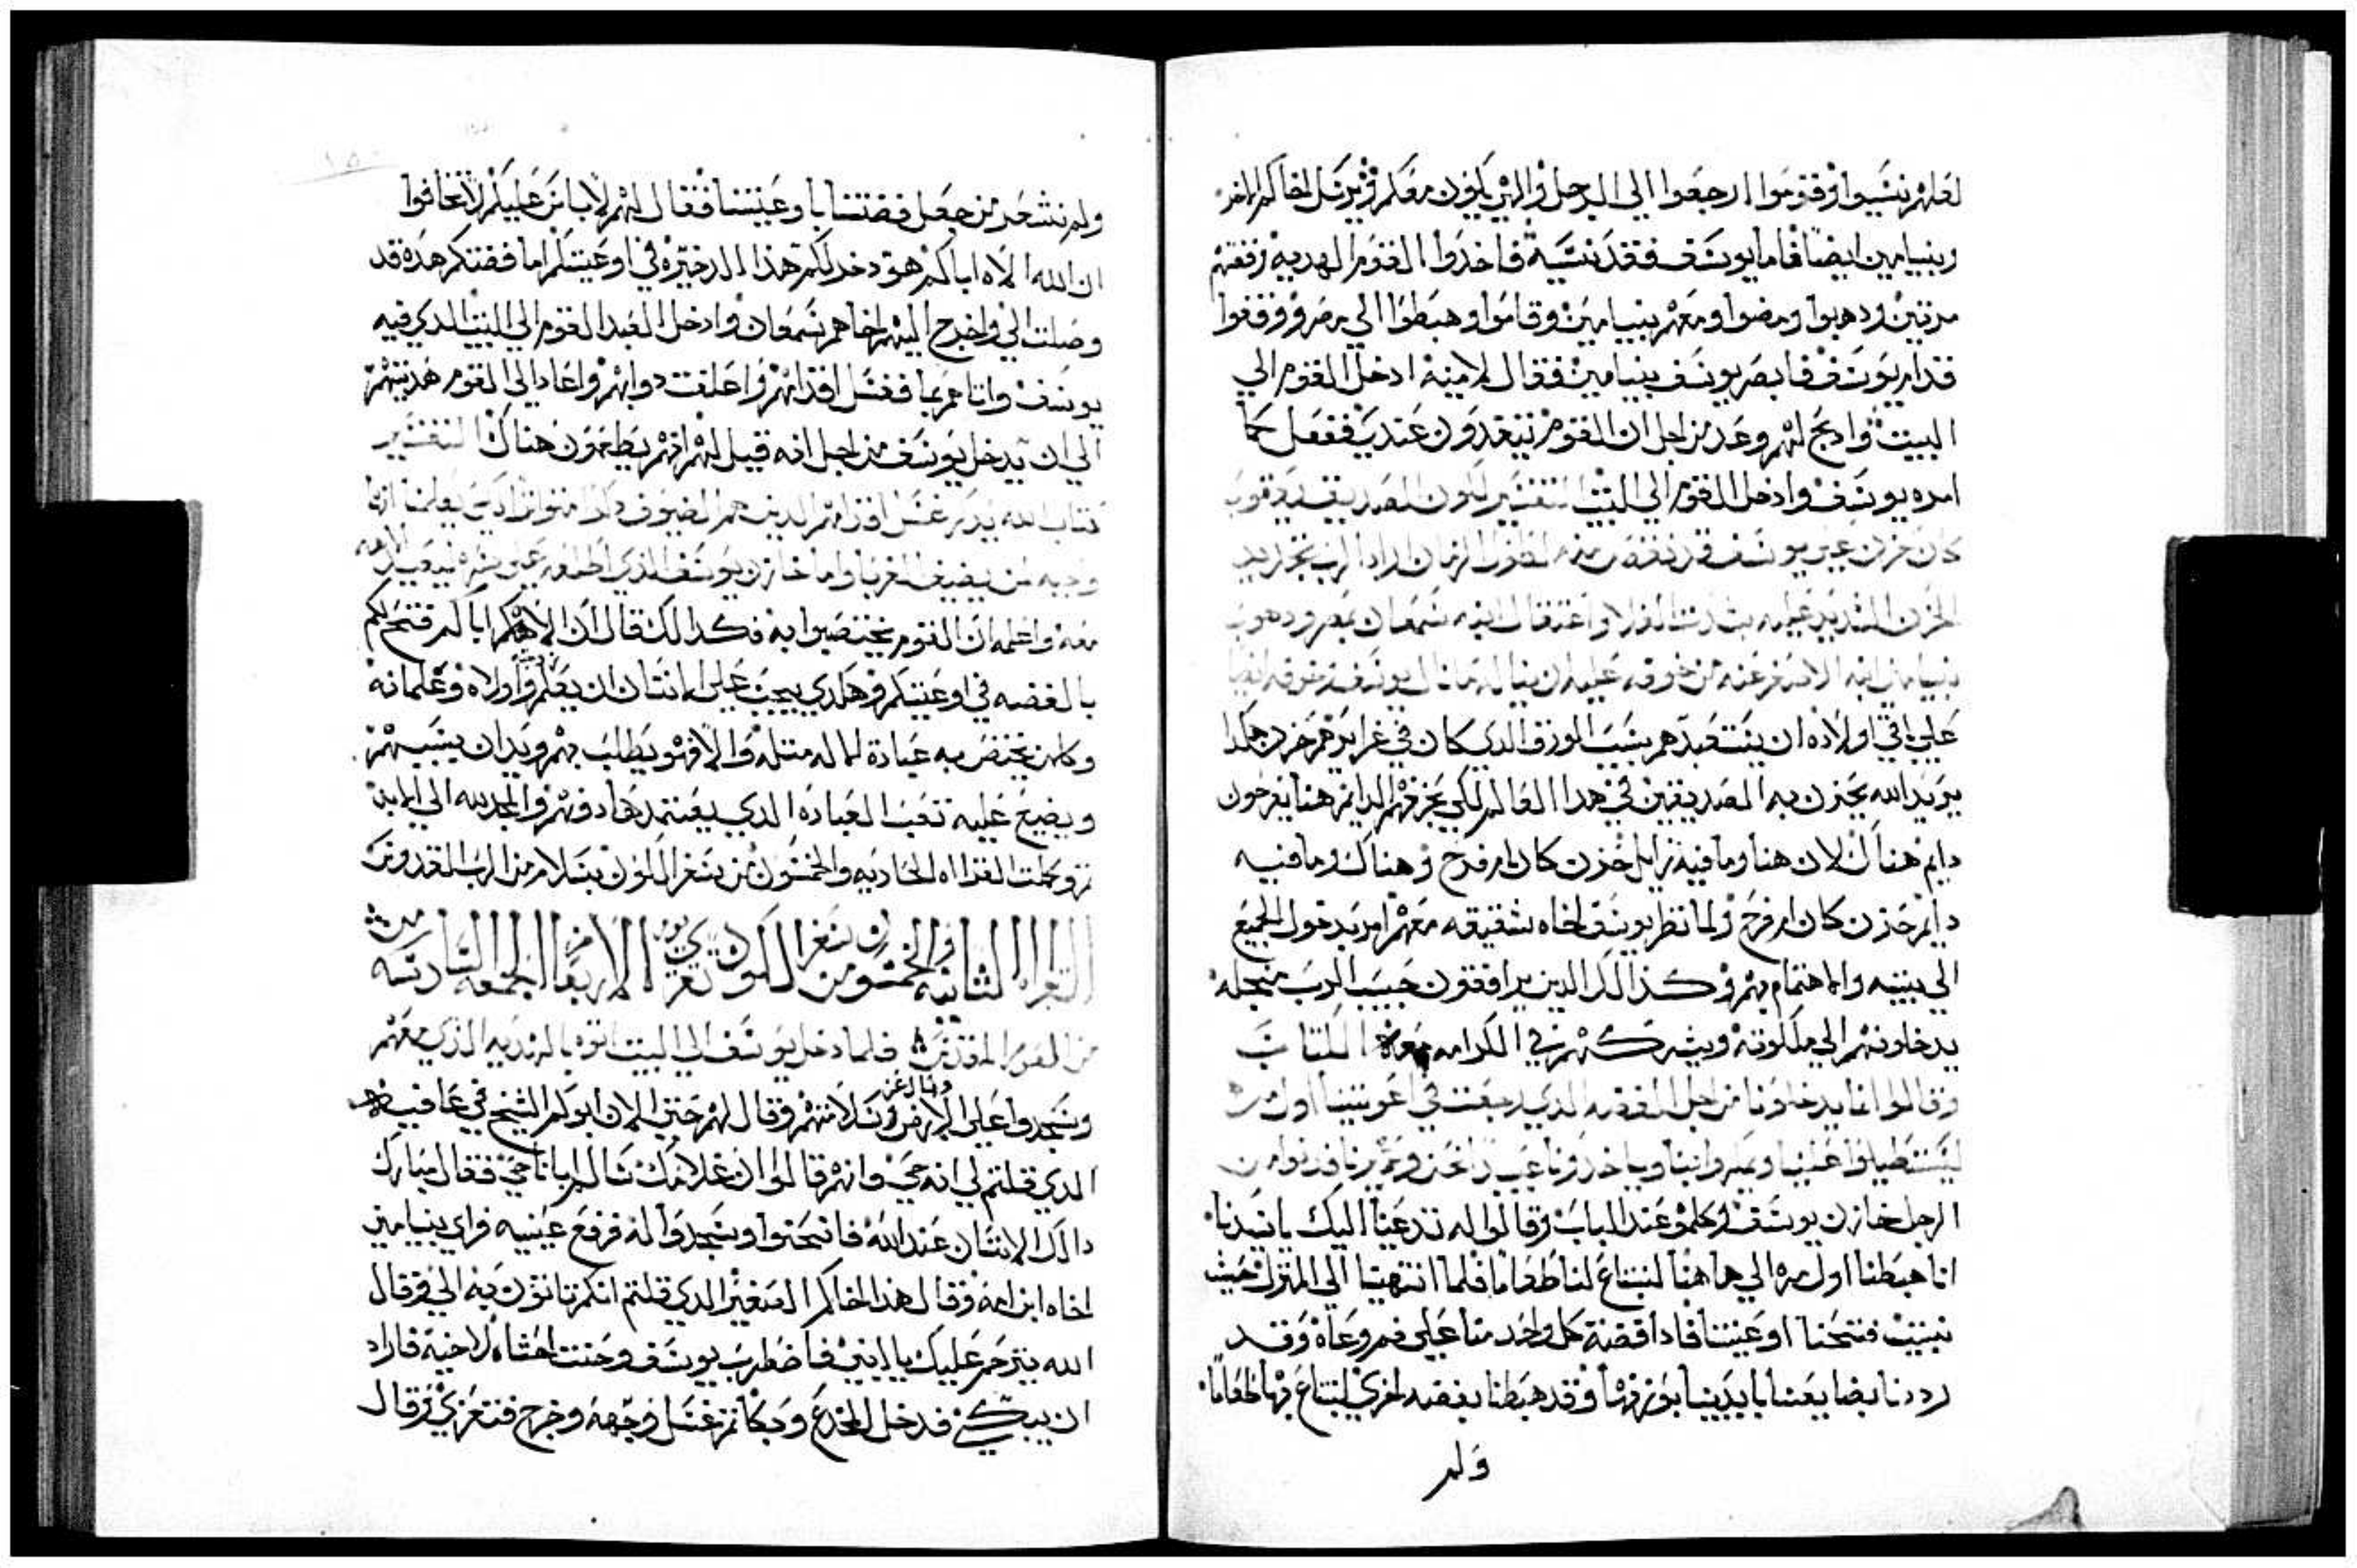 لعلهم نسيوا وقوموا ارجعوا الي الرجل والهي يكون معكم ويرسل اخاكم الاخر
وبنيامين ايضا فاما يوسف فقد نسيه فاخدوا القوم الهديه وفضتهم
مرتين ودهبوا ومضوا ومعهم بنيامين وقاموا وهبطوا الي مصر ووقفوا
قدام يوسف فابصر يوسف بنيامين فقال لامينه ادخل القوم الي
البيت وادبح لهم وعد من اجل ان القوم يتغدون عندي ففعل كما
امره يوسف وادخل القوم الي البيت التفسير لكون الصديق يعقوب
كان حزن علي يوسف قد نقص منه لطول الزمان اراد الرب تجديد
الحزن الشديد عليه بشدت الغلا واعتقال ابنه شمعان بمصر ودهوب
بنيامين ابنه الاصغر عنه من خوفه عليه ان يناله ما نال يوسف وخوفه ايضا
علي باقي اولاده ان يستعبدهم بسبب الورق الدي كان في غرايرهم حزن هكدا
يريد الله يحزن به الصديقين في هدا العالم لكي بحزنهم الدايم هنا يفرحون
دايم هناك لان هنا وما فيه زايل حزن كان ام فرح وهناك وما فيه
دايم حزن كان ام فرح ولما نظر يوسف اخاه شقيقه معهم امر بدخول الجميع
الي بيته والاهتمام بهم وكدالك الدين يرافقون حبيب الرب من اجله
يدخلونهم الي ملكوته ويشركهم في الكرامه معه الكتاب
وقالوا انما يدخلونا من اجل الفضه الدي رجعت في اعويتنا اول مره
ليستطيلوا علينا وياخدونا عبيدا نحن وحميرنا فدنوا من
الرجل خازن يوسف وكلموه عند الباب وقالوا له نتدعنا اليك ياسيدنا
انا هبطنا اول مره الي هاهنا لنبتاع لنا طعاما فلما انتهينا الي المنزل حيث
نبيت فتحنا اوعيتنا فادا فضة كل واحد منا علي فم وعاه وقد
رددنا بضايعنا بايدينا بوزنها وقد هبطنا بفضه اخري لنبتاع بها طعاما
ولم
ولم نشعر من جعل فضتنا باوعيتنا فقال لهم لا باس عليكم لا تخافوا
ان الله الاه اباكم هو دخر لكم هدا الدخيره في اوعيتكم اما فضتكم هده قد
وصلت الي واخرج اليهم اخاهم شمعان وادخل العبد القوم الي البيت الدي فيه
يوسف واتاهم بما فغسل اقدامهم واعلفت دوابهم واعادا الي القوم هديتهم
الي ان يدخل يوسف من اجل انه قيل لهم انهم يطعمون هناك التفسير
كتاب الله يدكر غسل اقدامهم الدين هم الضيوف يعلمنا انها
وجبه لمن يضيف الغربا واما خازن يوسف الدي اطلعه علي سره
معه واعلمه ان القوم يختصوا به فكدالك قال ان الاهكم اباكم فتح لكم
بالفضه في اوعيتكم وهكدي يجب علي الانسان ان يعلم اولاده وغلمانه
وكلمن يختص به عبادة لماله مثله والا فهو يطلب بهم ويدان بسببهم
ويضيع عليه تعب العباده الدي يعتمدها دونهم والمجد لله الي الابد
تم وكملت القراه الحاديه والخمسون من سفر التكوين بسلام من الرب القدوس
القراه الثانيه والخمسون من سفر التكوين تقري يوم الاربعا من الجمعه السادسه
من الصوم المقدس فلما دخل يوسف الي البيت اتوه بالهديه الذي معهم
وسجدوا علي الارض وسلامتهم وقال لهم حتي الان ابوكم الشيخ في عافيه
الدي قلتم لي انه حي وانهم قالوا ان غلامك سالم ابانا حي فقال مبارك
دالك الانسان عند الله فانحنوا وسجدوا له فرفع عينيه فراي بنيامين
اخاه ابن امه وقال هدا اخاكم الصغير الدي قلتم انكم تاتون به الي وقال
الله يترحم عليك يا ابني فاضطرب يوسف وحنت احشاه لاخيه فاراد
ان يبكي فدخل المخدع وبكا ثم غسل وجهه وخرج فتعزي وقال